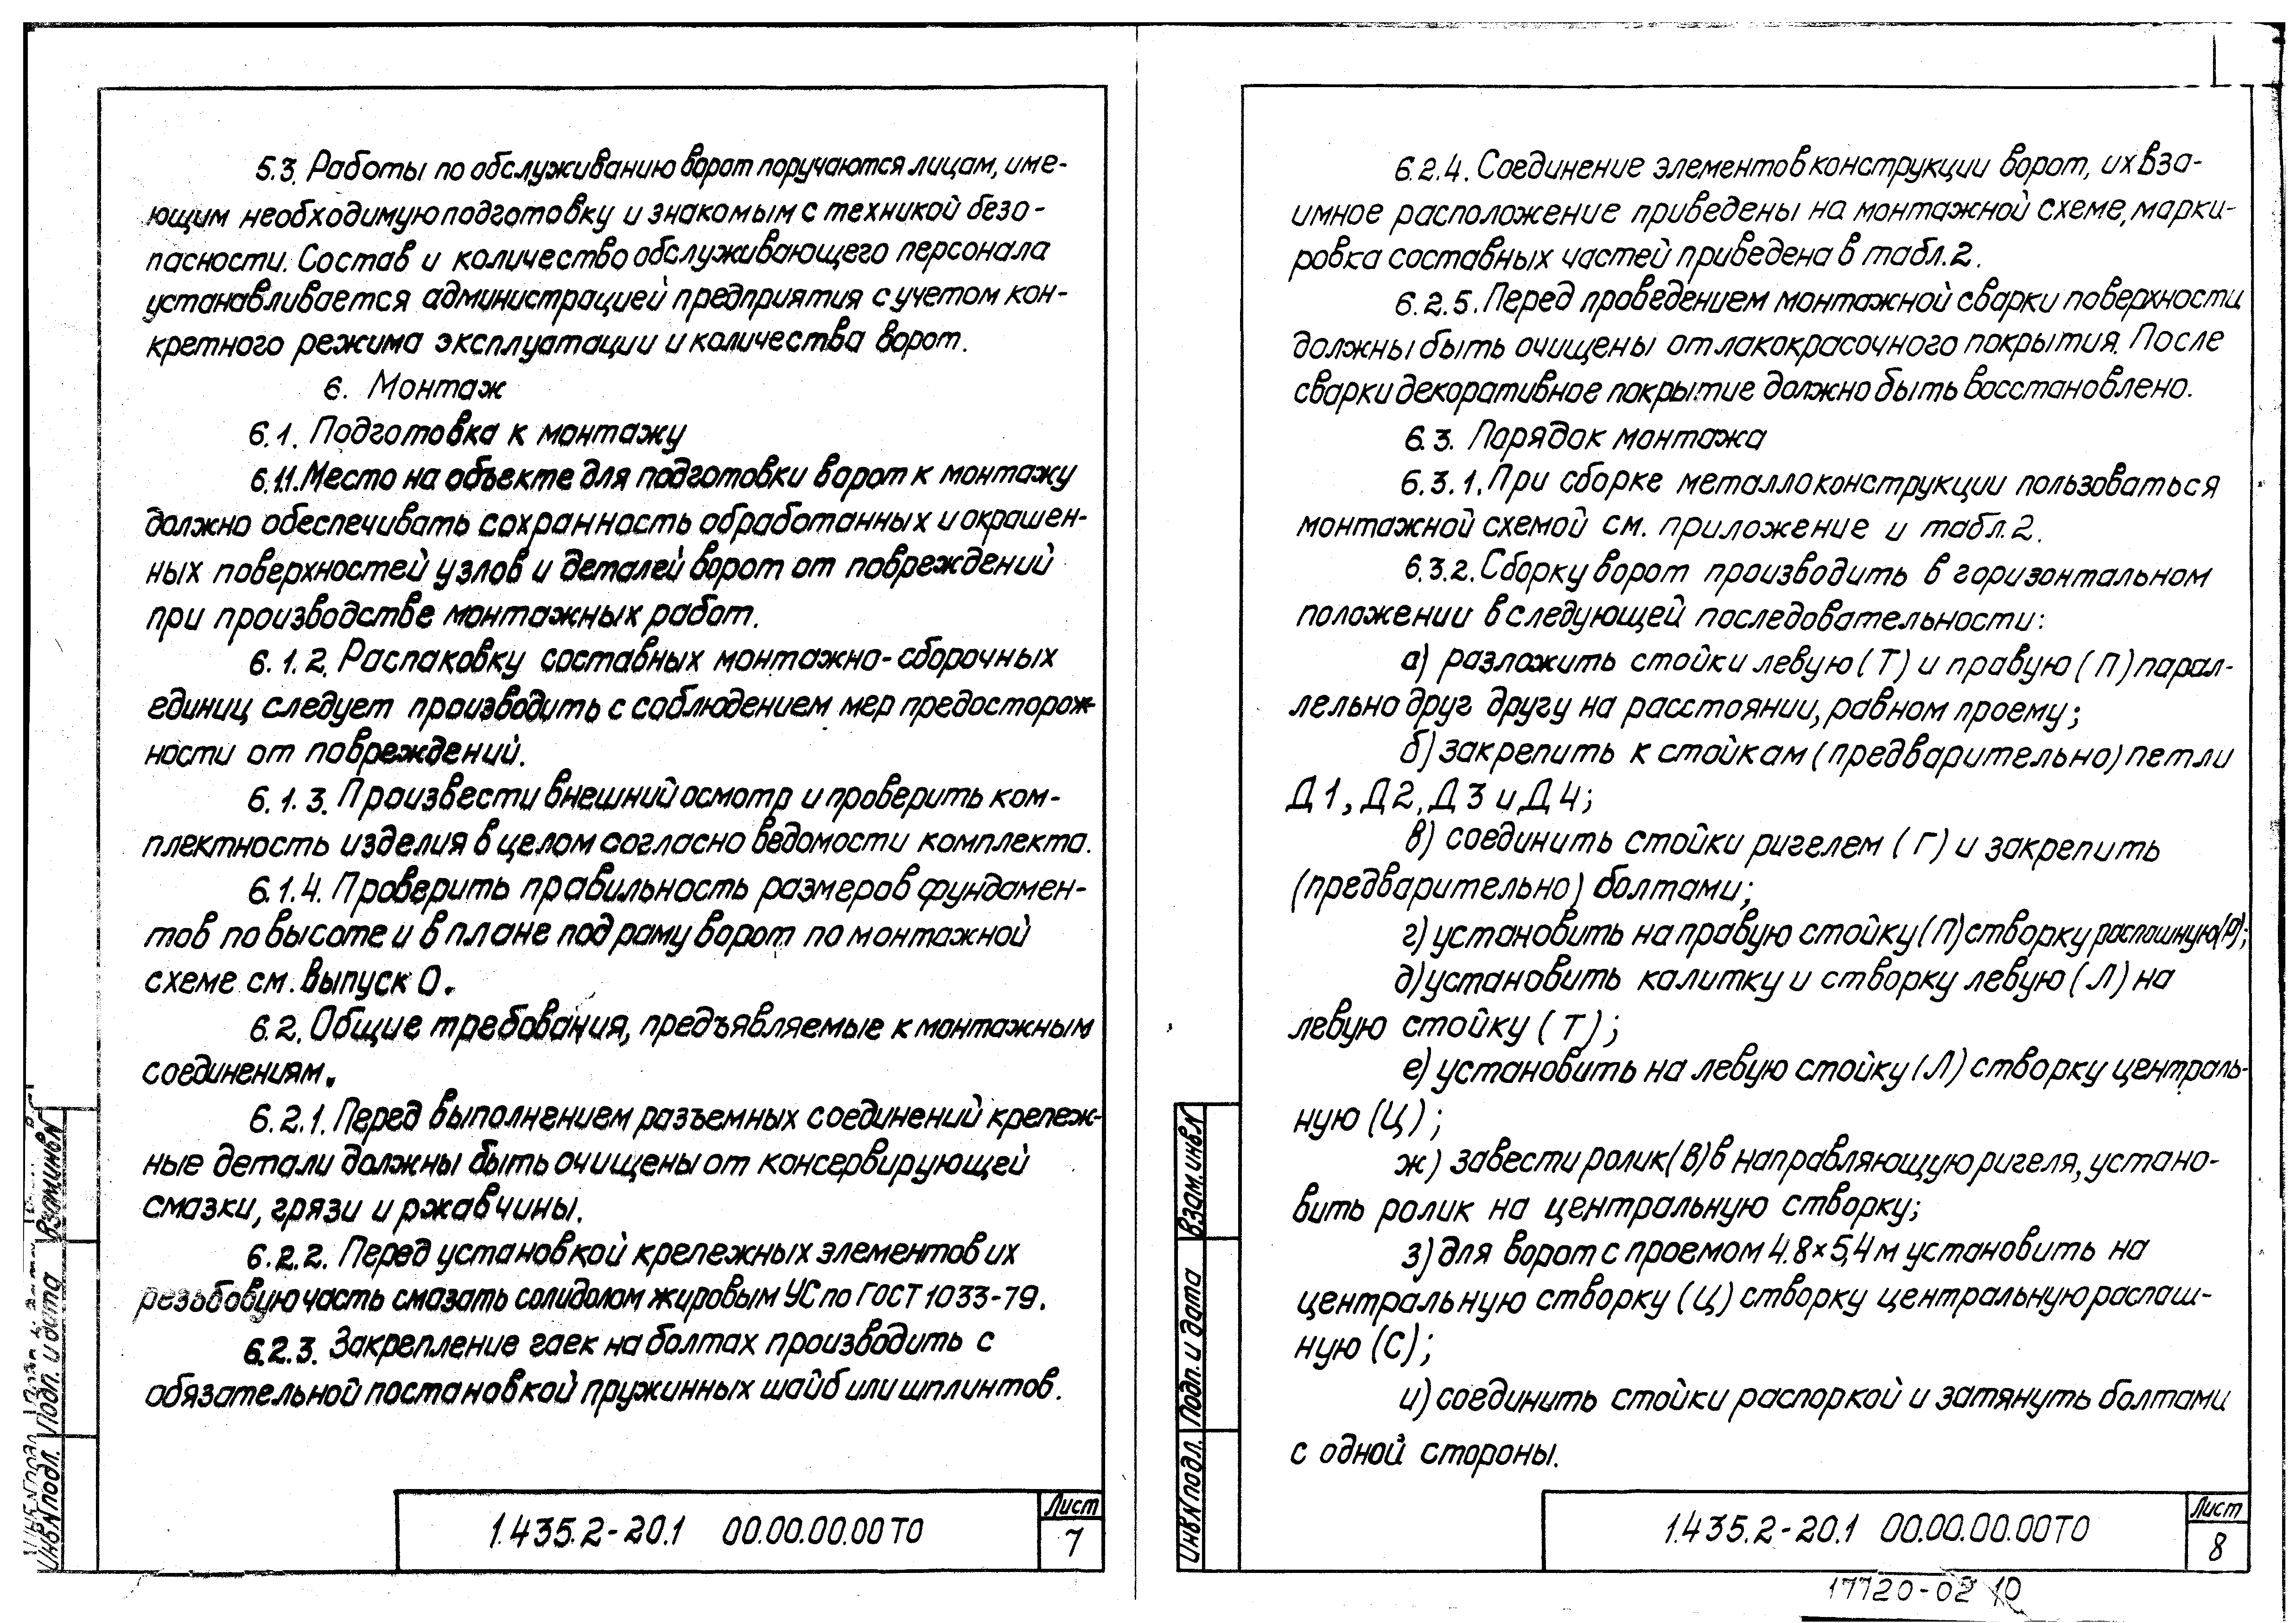 5.3. Работы по обслуживанию ворот поручаются лицам, име-
ющим необходимую подготовку и знакомым с техникой безо-
пасности. Состав и количество обслуживающего персонала
устанавливается администрацией предприятия с учетом кон-
кретного режима эксплуатации и количества ворот.
6. Монтаж
6.1. Подготовка к монтажу
6.1.1. Место на объекте для подготовки ворот к монтажу
должно обеспечивать сохранность обработанных и окрашен-
ных поверхностей узлов и деталей ворот от повреждений
при производстве монтажных работ.
6.1.2. Распаковку составных монтажно-сборочных
единиц следует производить с соблюдением мер предосторож-
ности от повреждений.
6.1.3. Произвести внешний осмотр и проверить ком-
плектность изделия в целом согласно ведомости комплекта.
6.1.4. Проверить правильность размеров фундамен-
тов по высоте и в плане под раму ворот по монтажной
схеме см. выпуск 0.
6.2. Общие требования, предъявляемые к монтажным
соединениям.
6.2.1. Перед выполнением разъемных соединений крепеж-
ные детали должны быть очищены от консервирующей
смазки, грязи и ржавчины.
6.2.2. Перед установкой крепежных элементов их
резьбовую часть смазать солидолом жировым УС по ГОСТ 1033-79.
6.2.3. Закрепление гаек на болтах производить с
обязательной постановкой пружинных шайб или шплинтов.
Взам.инв.N
Подп. и дата
Инв.N подл.
1.435.2-20.1 00.00.00.00ТО
Лист
7
6.2.4. Соединение элементов конструкции ворот, их вза-
имное расположение приведены на монтажной схеме, марки-
ровка составных частей приведена в табл.2.
6.2.5. Перед проведением монтажной сварки поверхности
должны быть очищены от лакокрасочного покрытия. После
сварки декоративное покрытие должно быть восстановлено.
6.3. Порядок монтажа
6.3.1. При сборке металлоконструкции пользоваться
монтажной схемой см. приложение и табл.2.
6.3.2. Сборку ворот производить в горизонтальном
положении в следующей последовательности:
а) разложить стойки левую (Т) и правую (П) парал-
лельно друг другу на расстоянии, равном проему;
б) закрепить к стойкам (предварительно) петли
Д1, Д2, Д3 и Д4;
в) соединить стойки ригелем (Г) и закрепить
(предварительно) болтами;
г) установить на правую стойку (П) створку распашную (Р);
д) установить калитку и створку левую (Л) на
левую стойку (Т);
е) установить на левую стойку (Л) створку централь-
ную (Ц);
ж) завести ролик (В) в направляющую ригеля, устано-
вить ролик на центральную створку;
з) для ворот с проемом 4.8×5,4 м установить на
центральную створку (Ц) створку центральную распаш-
ную (С);
и) соединить стойки распоркой и затянуть болтами
с одной стороны.
Взам.инв.N
Подп. и дата
Инв.N подл.
1.435.2-20.1 00.00.00.00ТО
Лист
8
17720-02 10